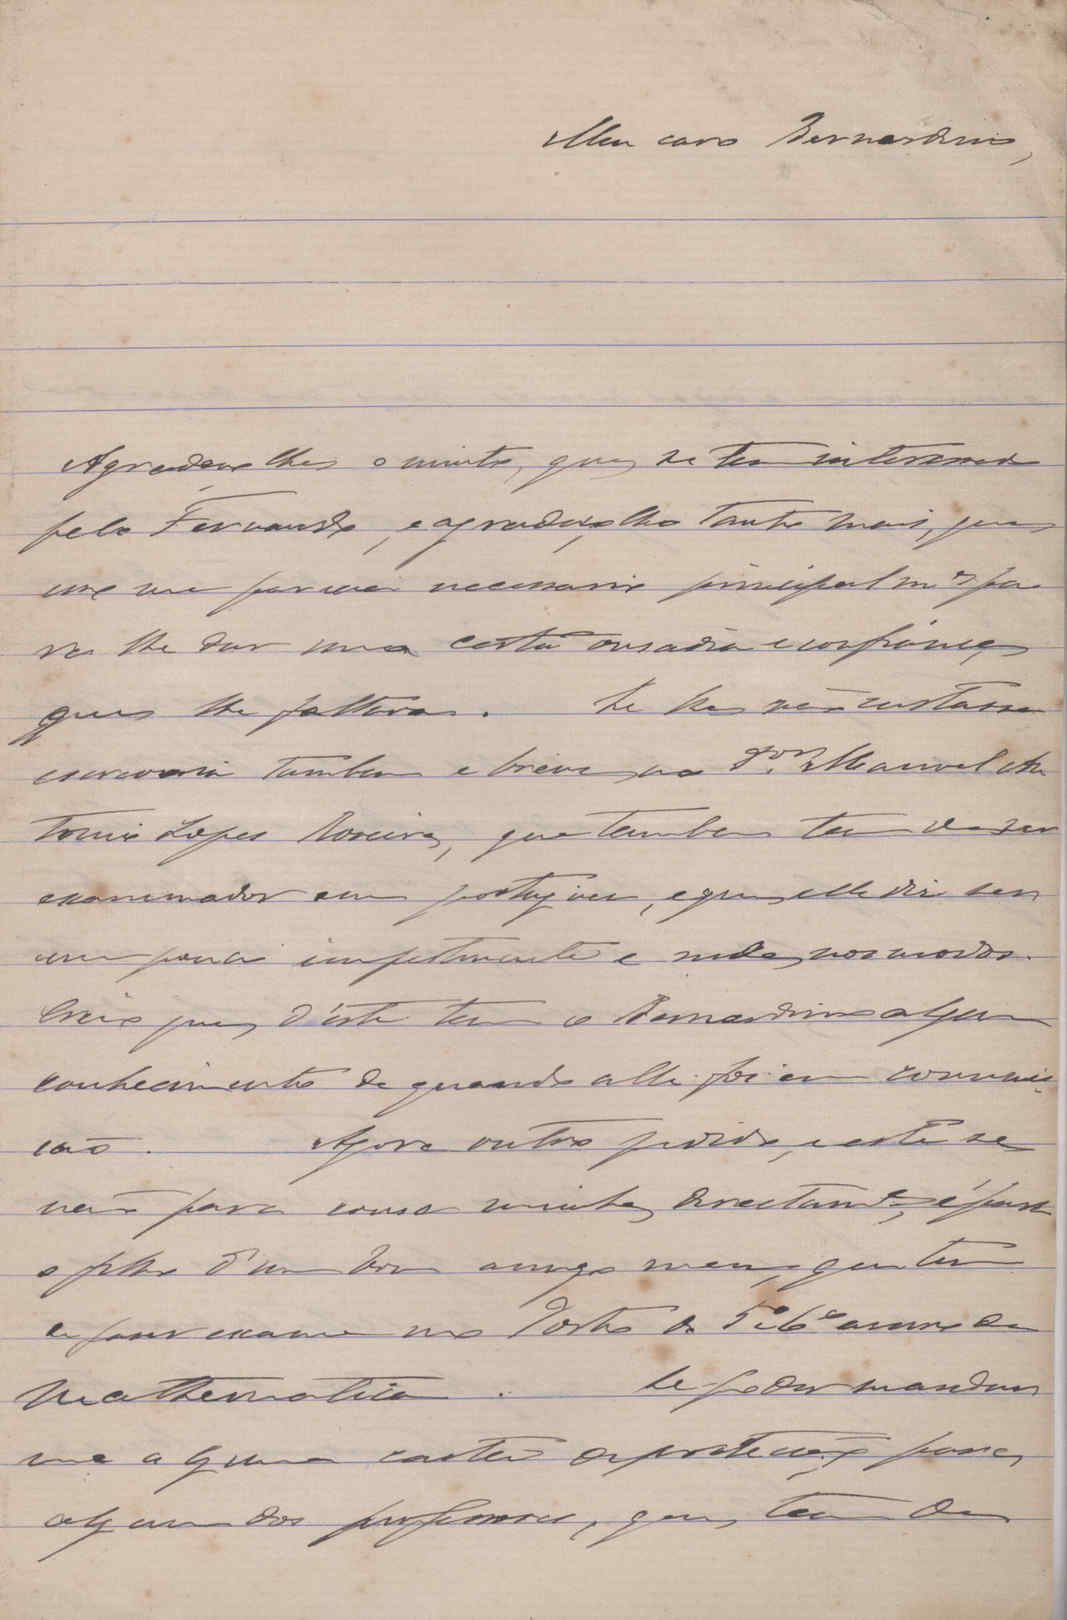 Meu caro Bernardino,
Agradeço lhe o muito, que se tem interessado
pelo Fernando, e agradeço, lho tanto mais, que
me parecia necessario principalm.te pa
ra lhe dar uma certa ousadia e confiança,
que lhe faltava. Se lhe não custasse
escreveria tambem e breve ao Manoel An
tonio Lopes, que tambem tem de ser
examinador em portuguez, e que elle diz ser
um pouco impertinente e rude, nos modos.
Creio que, d'este tem o Bernardino algum
conhecimento de quando alli foi em commis
são. Agora outro pedido, e este se
não para cousa minha, directam.te, é para
o filho d'um bom amigo meu, que tem
de fazer exame no Porto do 5º e 6º anno de
Mathematica. Se poder mandar
me alguma carta de protecção para,
algum dos professores, que, tem de